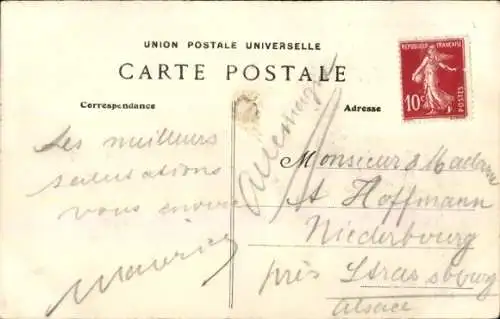 UNION POSTALE UNIVERSELLE
CARTE POSTALE
Correspondance
Adresse
REPUBLIQUE FRANÇAISE
10c
POSTES
Les meilleurs
salutations
vous envoie
Maurice
Allemagne
Monsieur & Madame
A Hoffmann
Niederbourg
près Strassbourg
Alsace